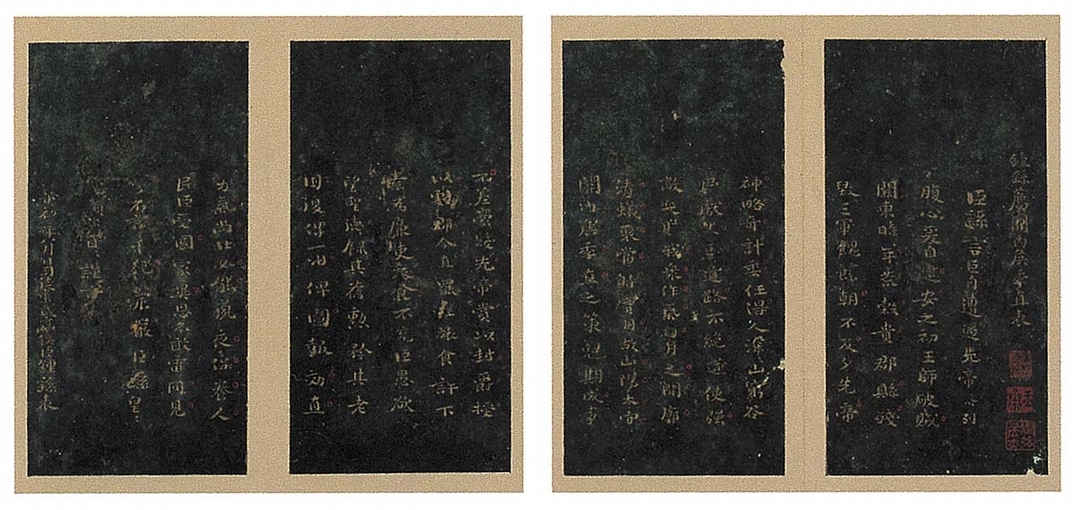 鍾繇薦關內侯季直表
臣繇言臣自遭遇先帝忝列
腹心爰自建安之初王師破賊
關東時年荒穀貴郡縣殘
毀三軍餽饟朝不及夕先帝
神略奇計委任得人深山窮谷
民獻米豆道路不絕遂使強
敵喪膽我眾作氣旬月之間廓
清蟻聚當時實用故山陽太守
關內侯季直之策剋期成事
不差豪髮先帝賞以封爵授
以劇郡今直罷任旅食許下
素為廉吏衣食不充臣愚欲
望聖德錄其舊勳矜其老
困復俾一州俾圖報效直
力氣尚壯必能夙夜保養人
民臣受國家異恩不敢雷同見
事不言干犯宸嚴臣繇皇
頓首謹言
八月日司徒東武亭侯臣鍾繇表